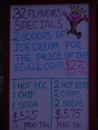 32 FLAVORS
SPECIALS
2 SCOOPS OF
ICE CREAM FOR
THE PRICE OF THE
SINGLE CONE $2.75
1 HOT DOG
1 CHIP
1 SODA
$3.75
PLUS TAX
2 HOT DOGS
2 CHIPS
2 SODAS
$5.75
PLUS TAX